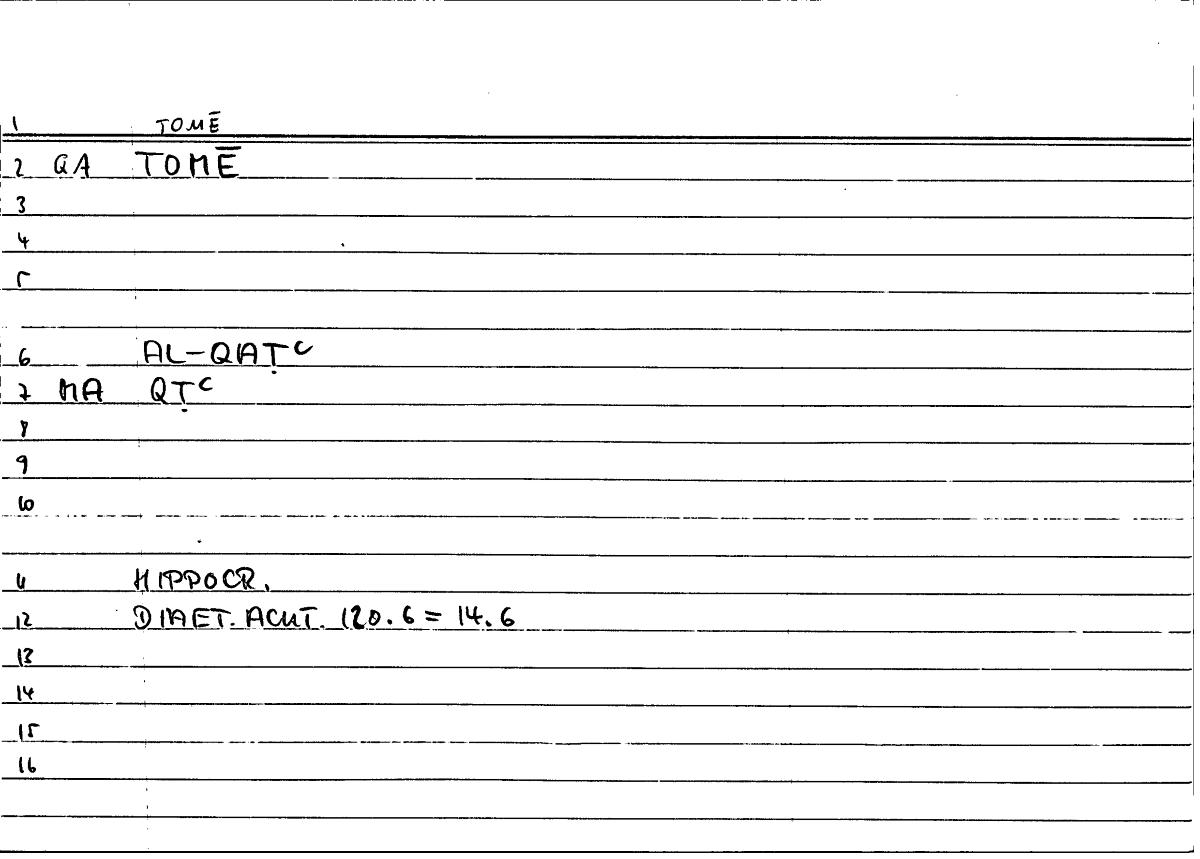 1 TOMĒ
2 QA TOMĒ
3
4
5
6 AL-QAṬC
7 MA QṬC
8
9
10
11 HIPPOCR.
12 DIAET. ACUT. 120.6 = 14.6
13
14
15
16